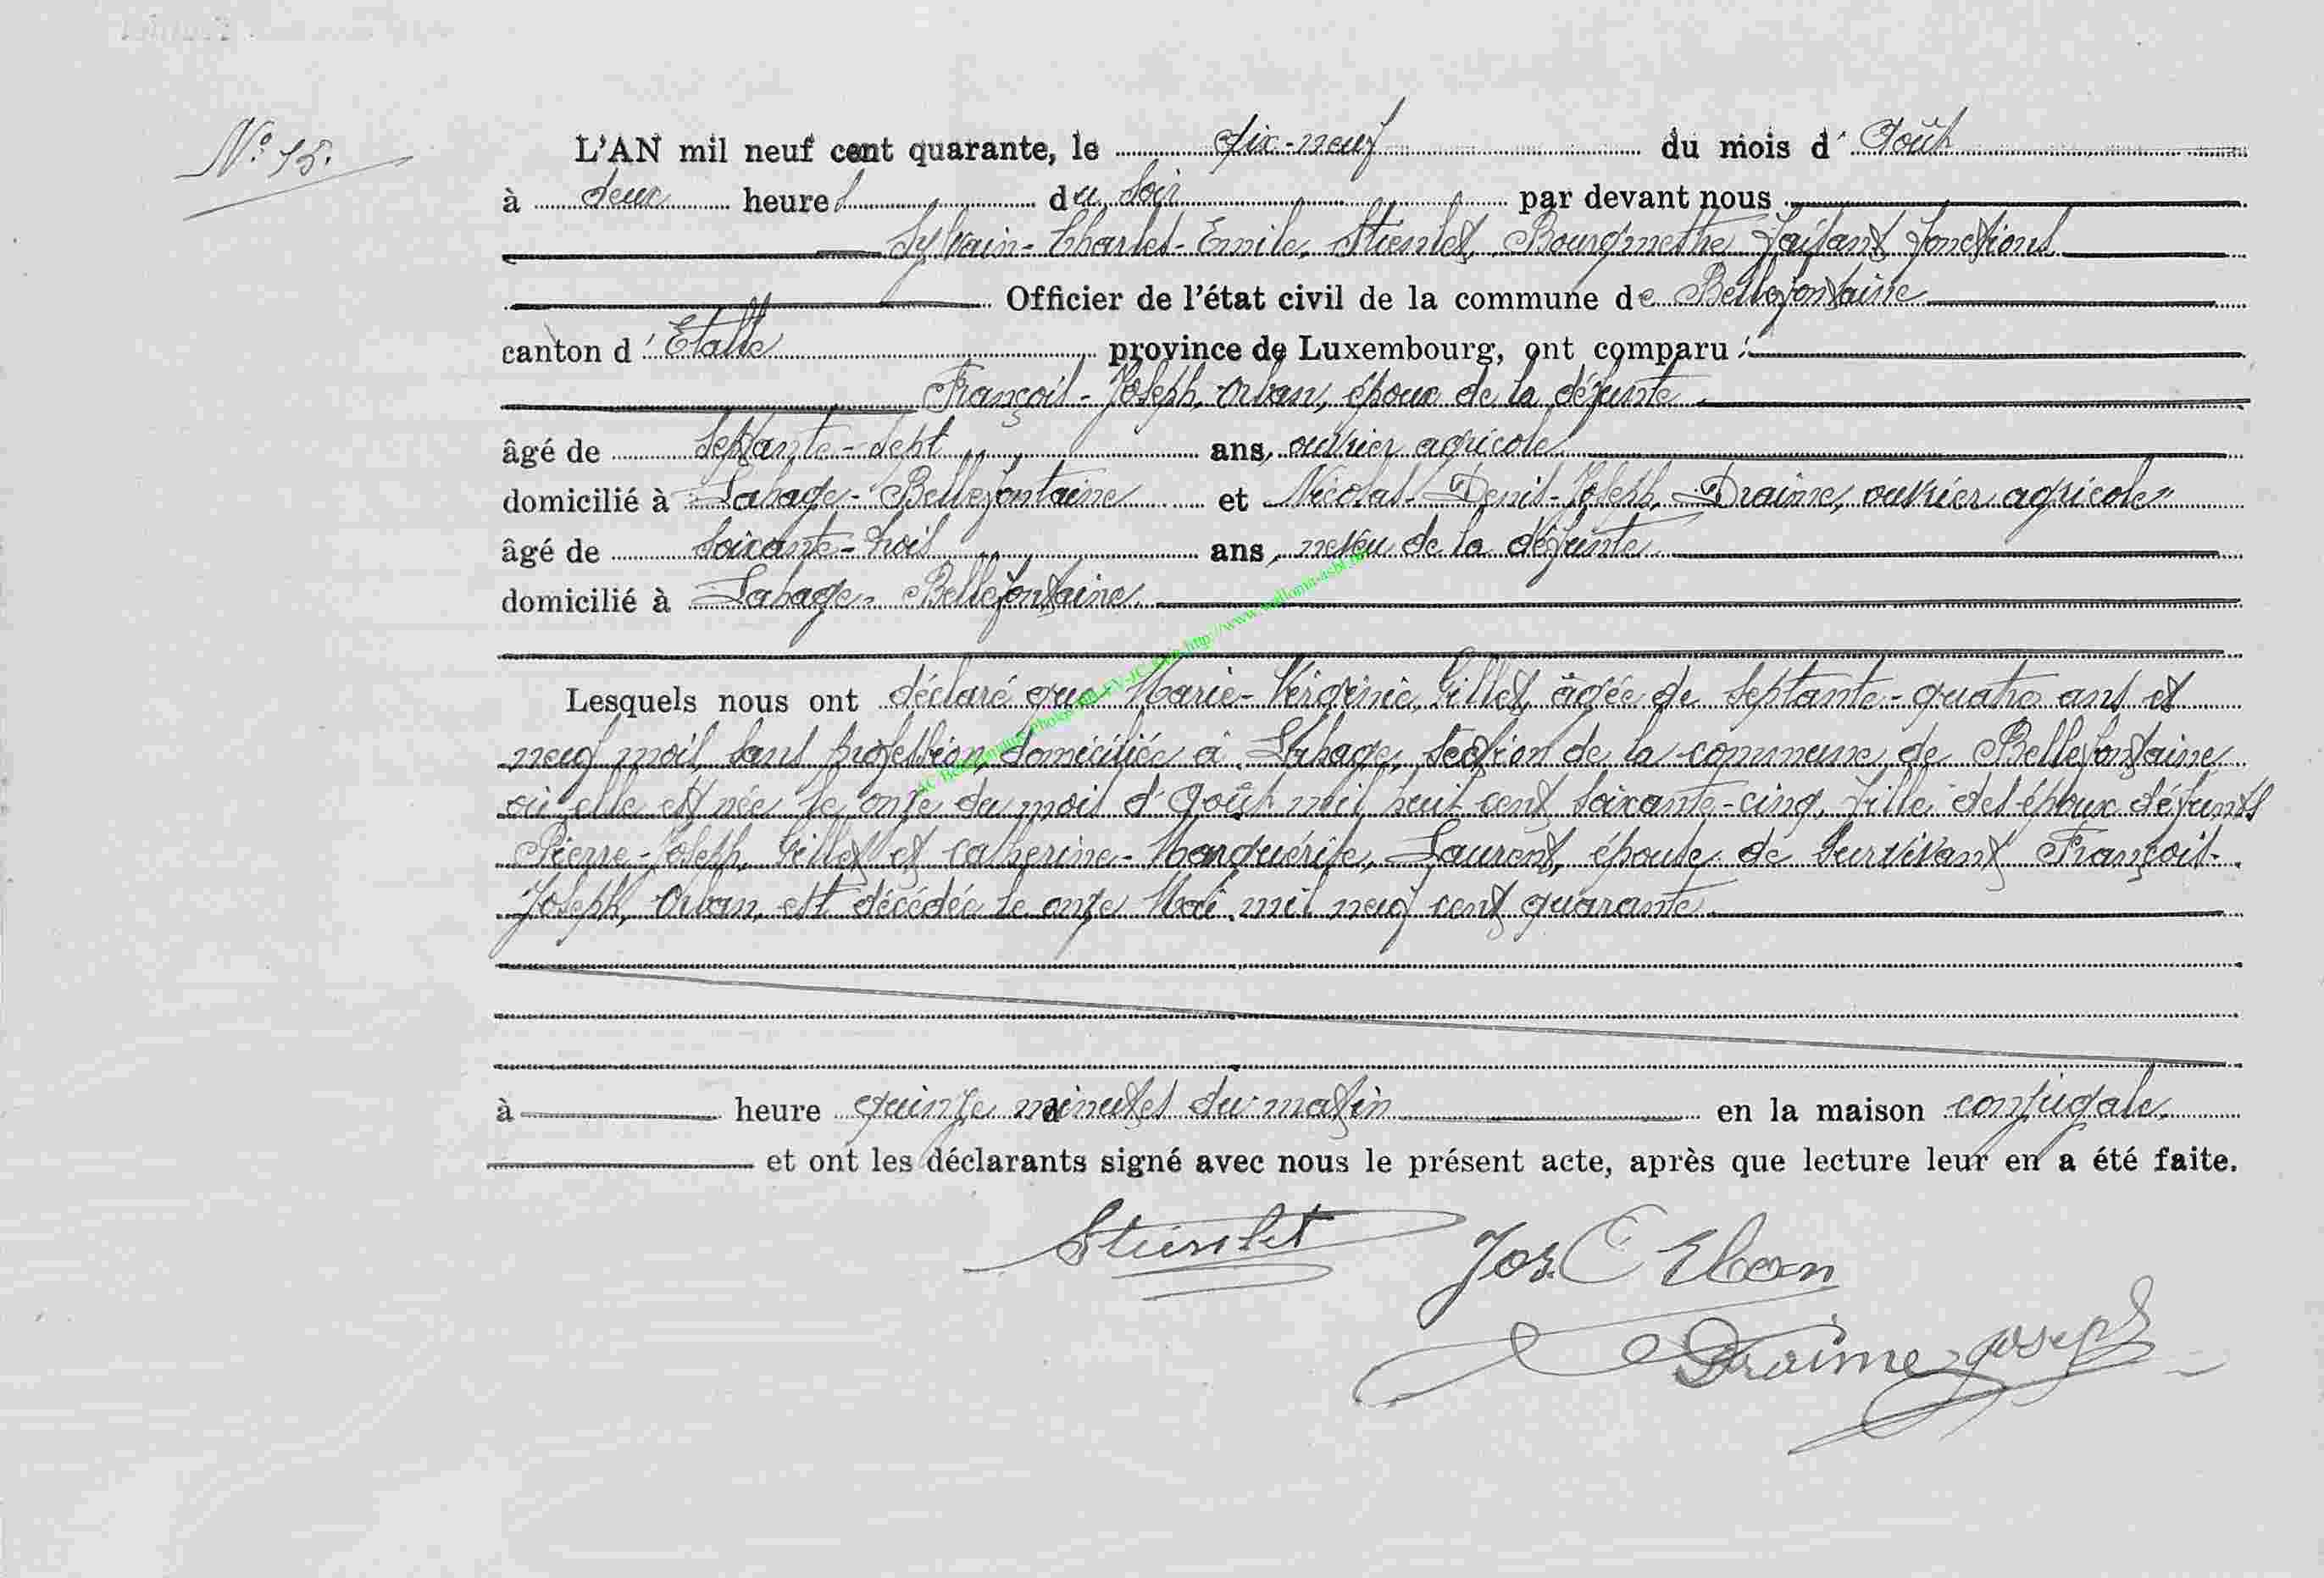 N° 15.
L'AN mil neuf cent quarante, le dix-neuf du mois d' Août
à deux heures du soir par devant nous
Sylvain-Charles-Emile, Stienlet, Bourgmestre faisant fonctions
Officier de l'état civil de la commune de Bellefontaine
canton d'Etalle province de Luxembourg, ont comparu :
François-Joseph, Orban, époux de la défunte
âgé de septante-sept ans, ouvrier agricole
domicilié à Lahage-Bellefontaine et Nicolas-Denis-Joseph, Draime, ouvrier agricole
âgé de soixante-trois ans, neveu de la défunte
domicilié à Lahage-Bellefontaine
Lesquels nous ont déclaré que Marie-Virginie, Gillet, âgée de septante-quatre ans et
neuf mois, sans profession, domiciliée à Lahage, section de la commune de Bellefontaine
où elle est née le onze du mois d'Août mil huit cent soixante-cinq, fille des époux défunts
Pierre-Joseph, Gillet et Catherine-Marguérite, Laurent, épouse de survivant François-
Joseph, Orban, est décédée le onze Mai mil neuf cent quarante
à heure quinze minutes du matin en la maison conjugale.
et ont les déclarants signé avec nous le présent acte, après que lecture leur en a été faite.
Stienlet Jos. Orban
Draime Joseph